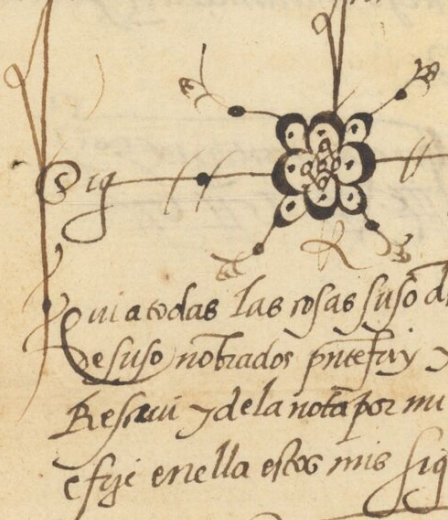 Sig
Qui a todas las cosas suso d
de suso nobrados pnte fuy y
Rescevi y de la nota por mi
e fize en ella estos mis sig